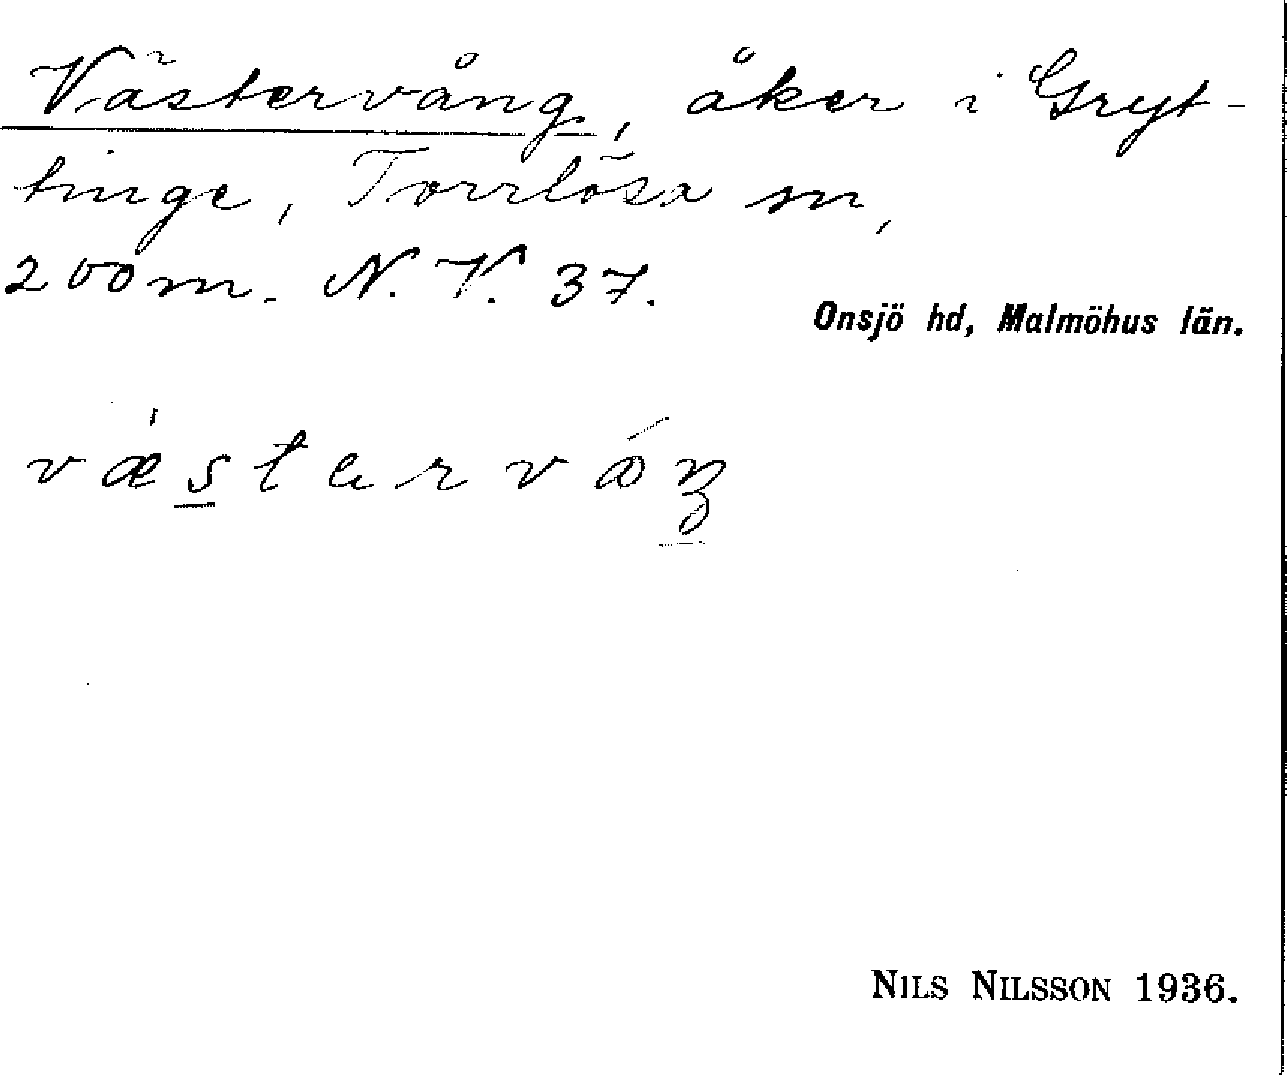 Västervång, åker i Gryt-
tinge, Torrlösa sn,
200 m. N. V. 37.
Onsjö hd, Malmöhus län.
væ̍stərvɷ́ŋ
NILS NILSSON 1936.